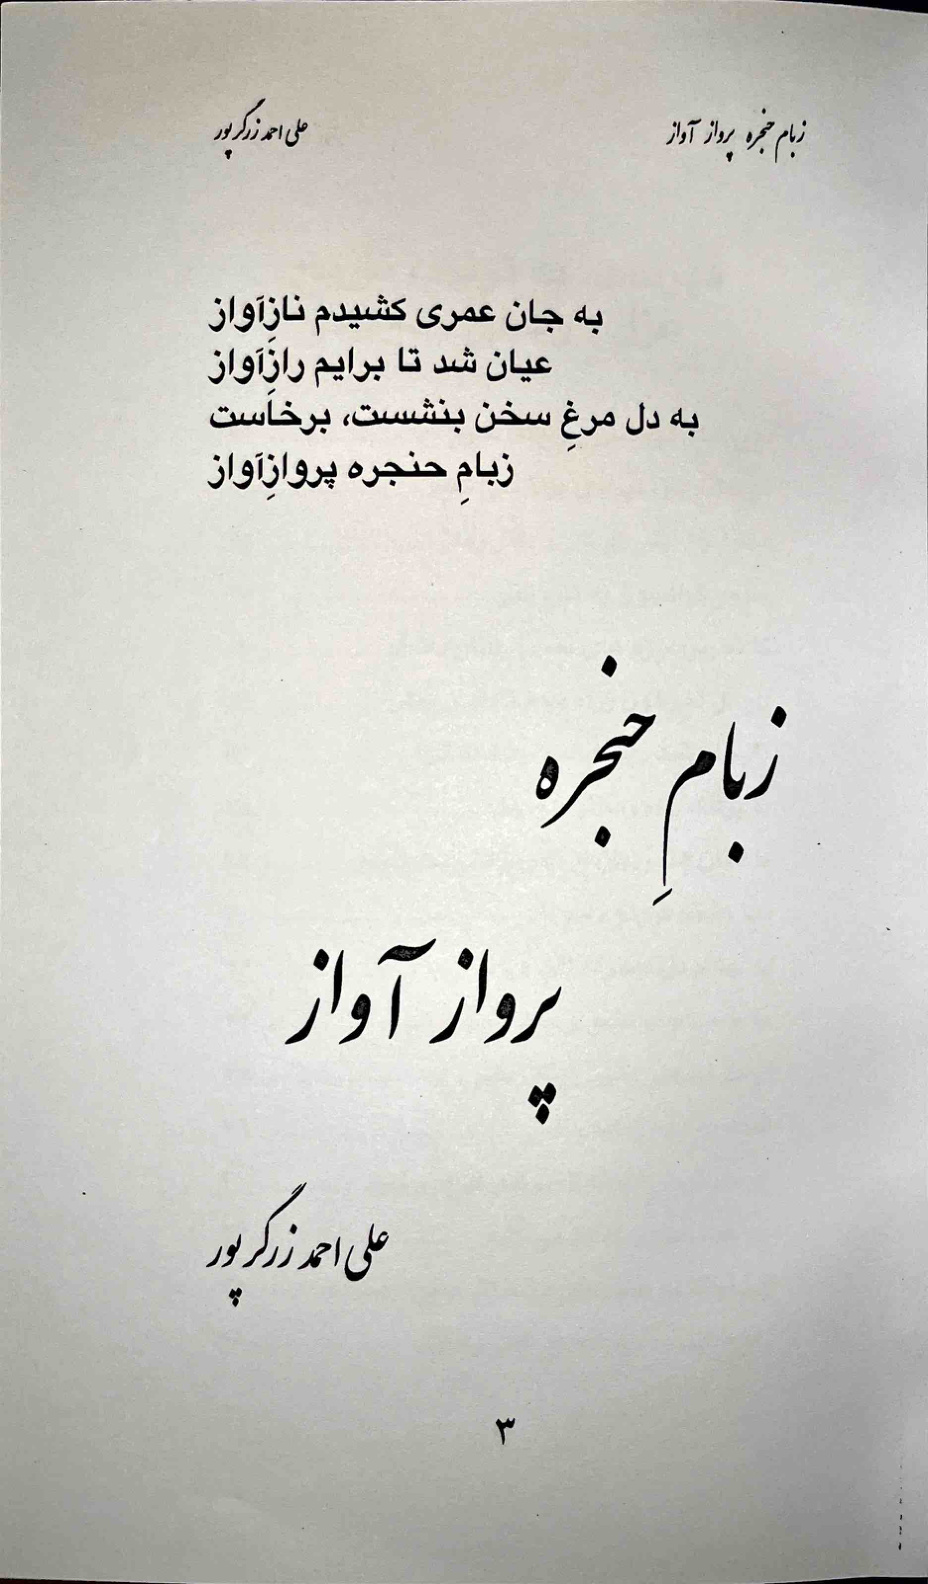 زبام حنجره پرواز آواز
علی احمد زرگرپور
به جان عمری کشیدم نازِآواز
عیان شد تا برایم رازِآواز
به دل مرغِ سخن بنشست، برخاست
زبامِ حنجره پروازِآواز
زبامِ حنجره
پرواز آواز
علی احمد زرگرپور
۳